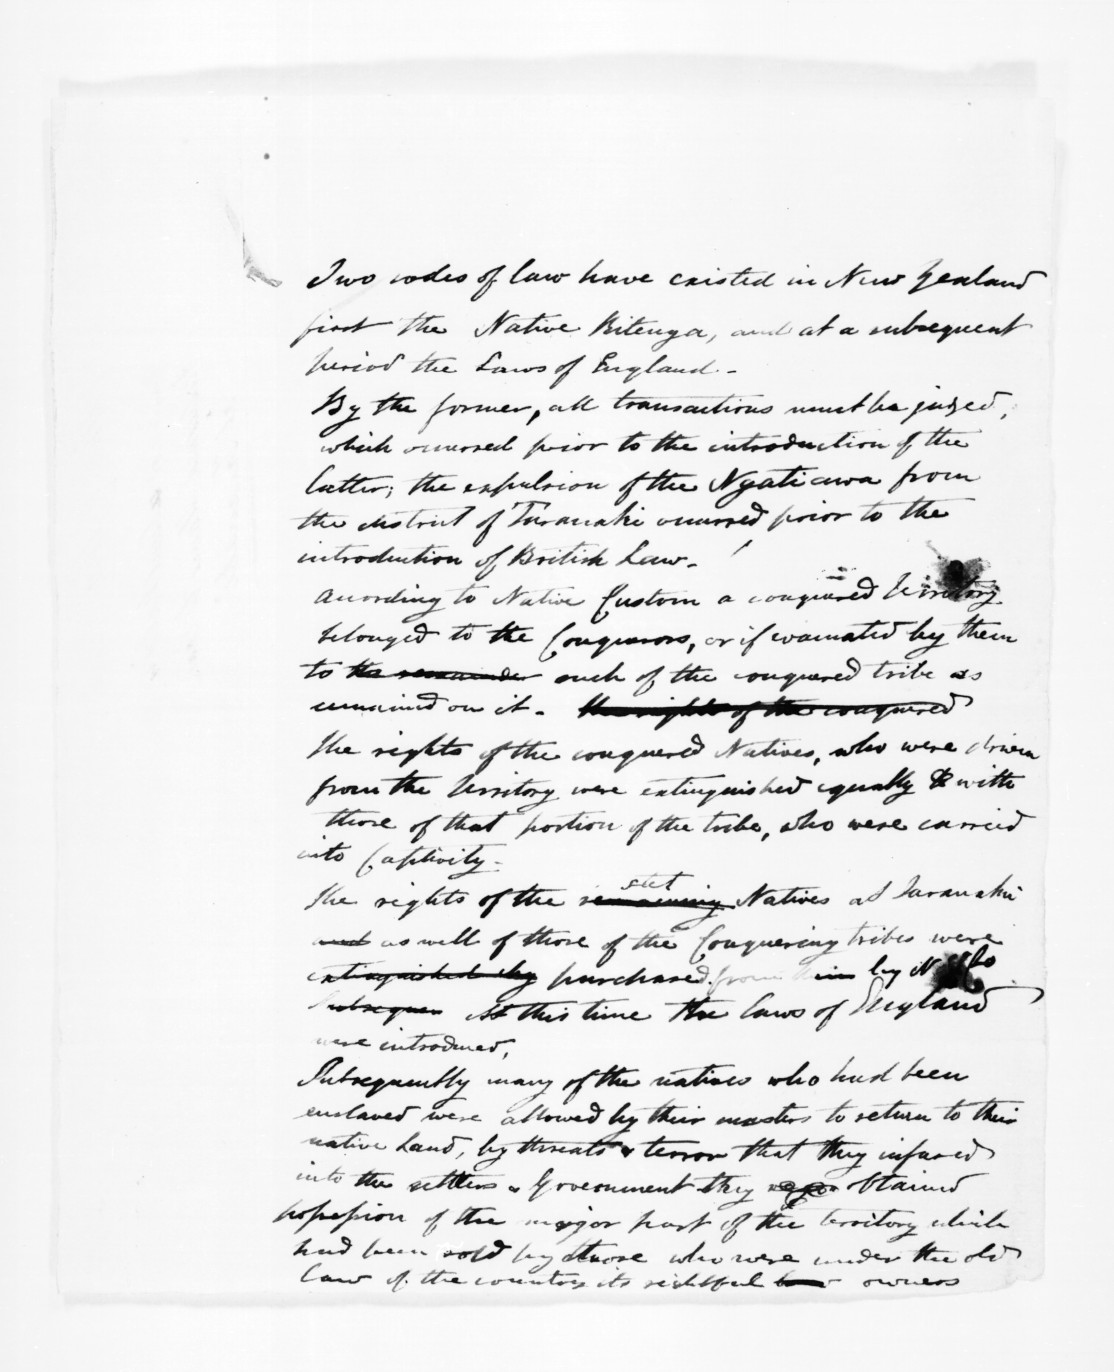 Two codes of law have existed in New Zealand
first the Native Ritenga, and at a subsequent
period the Laws of England -
By the former, all transactions must be judged,
which occurred prior to the introduction of the
latter; the expulsion of the Ngatiawa from
the district of Taranaki occurred prior to the
introduction of British Law -
According to Native Custom a conquered Territory
belonged to the Conquerors, or if evacuated by them
to the remainder such of the conquered tribe as
remained on it - the rights of the conquered
The rights of the conquered Natives, who were driven
from the Territory were extinguished equally with
those of that portion of the tribe, who were carried
into Captivity -
stet
The rights of the remaining Natives at Taranaki
and as well of those of the Conquering tribes were
extinguished by purchased from by N Z Co
Subsequen At this time the laws of England
were introduced,
Subsequently many of the natives who had been
enslaved were allowed by their masters to return to their
native Land, by threats & terror that they infused
into the settlers & Government they obtained
possession of the major part of the territory which
had been sold by those who were under the old
law of the country its rightful owners